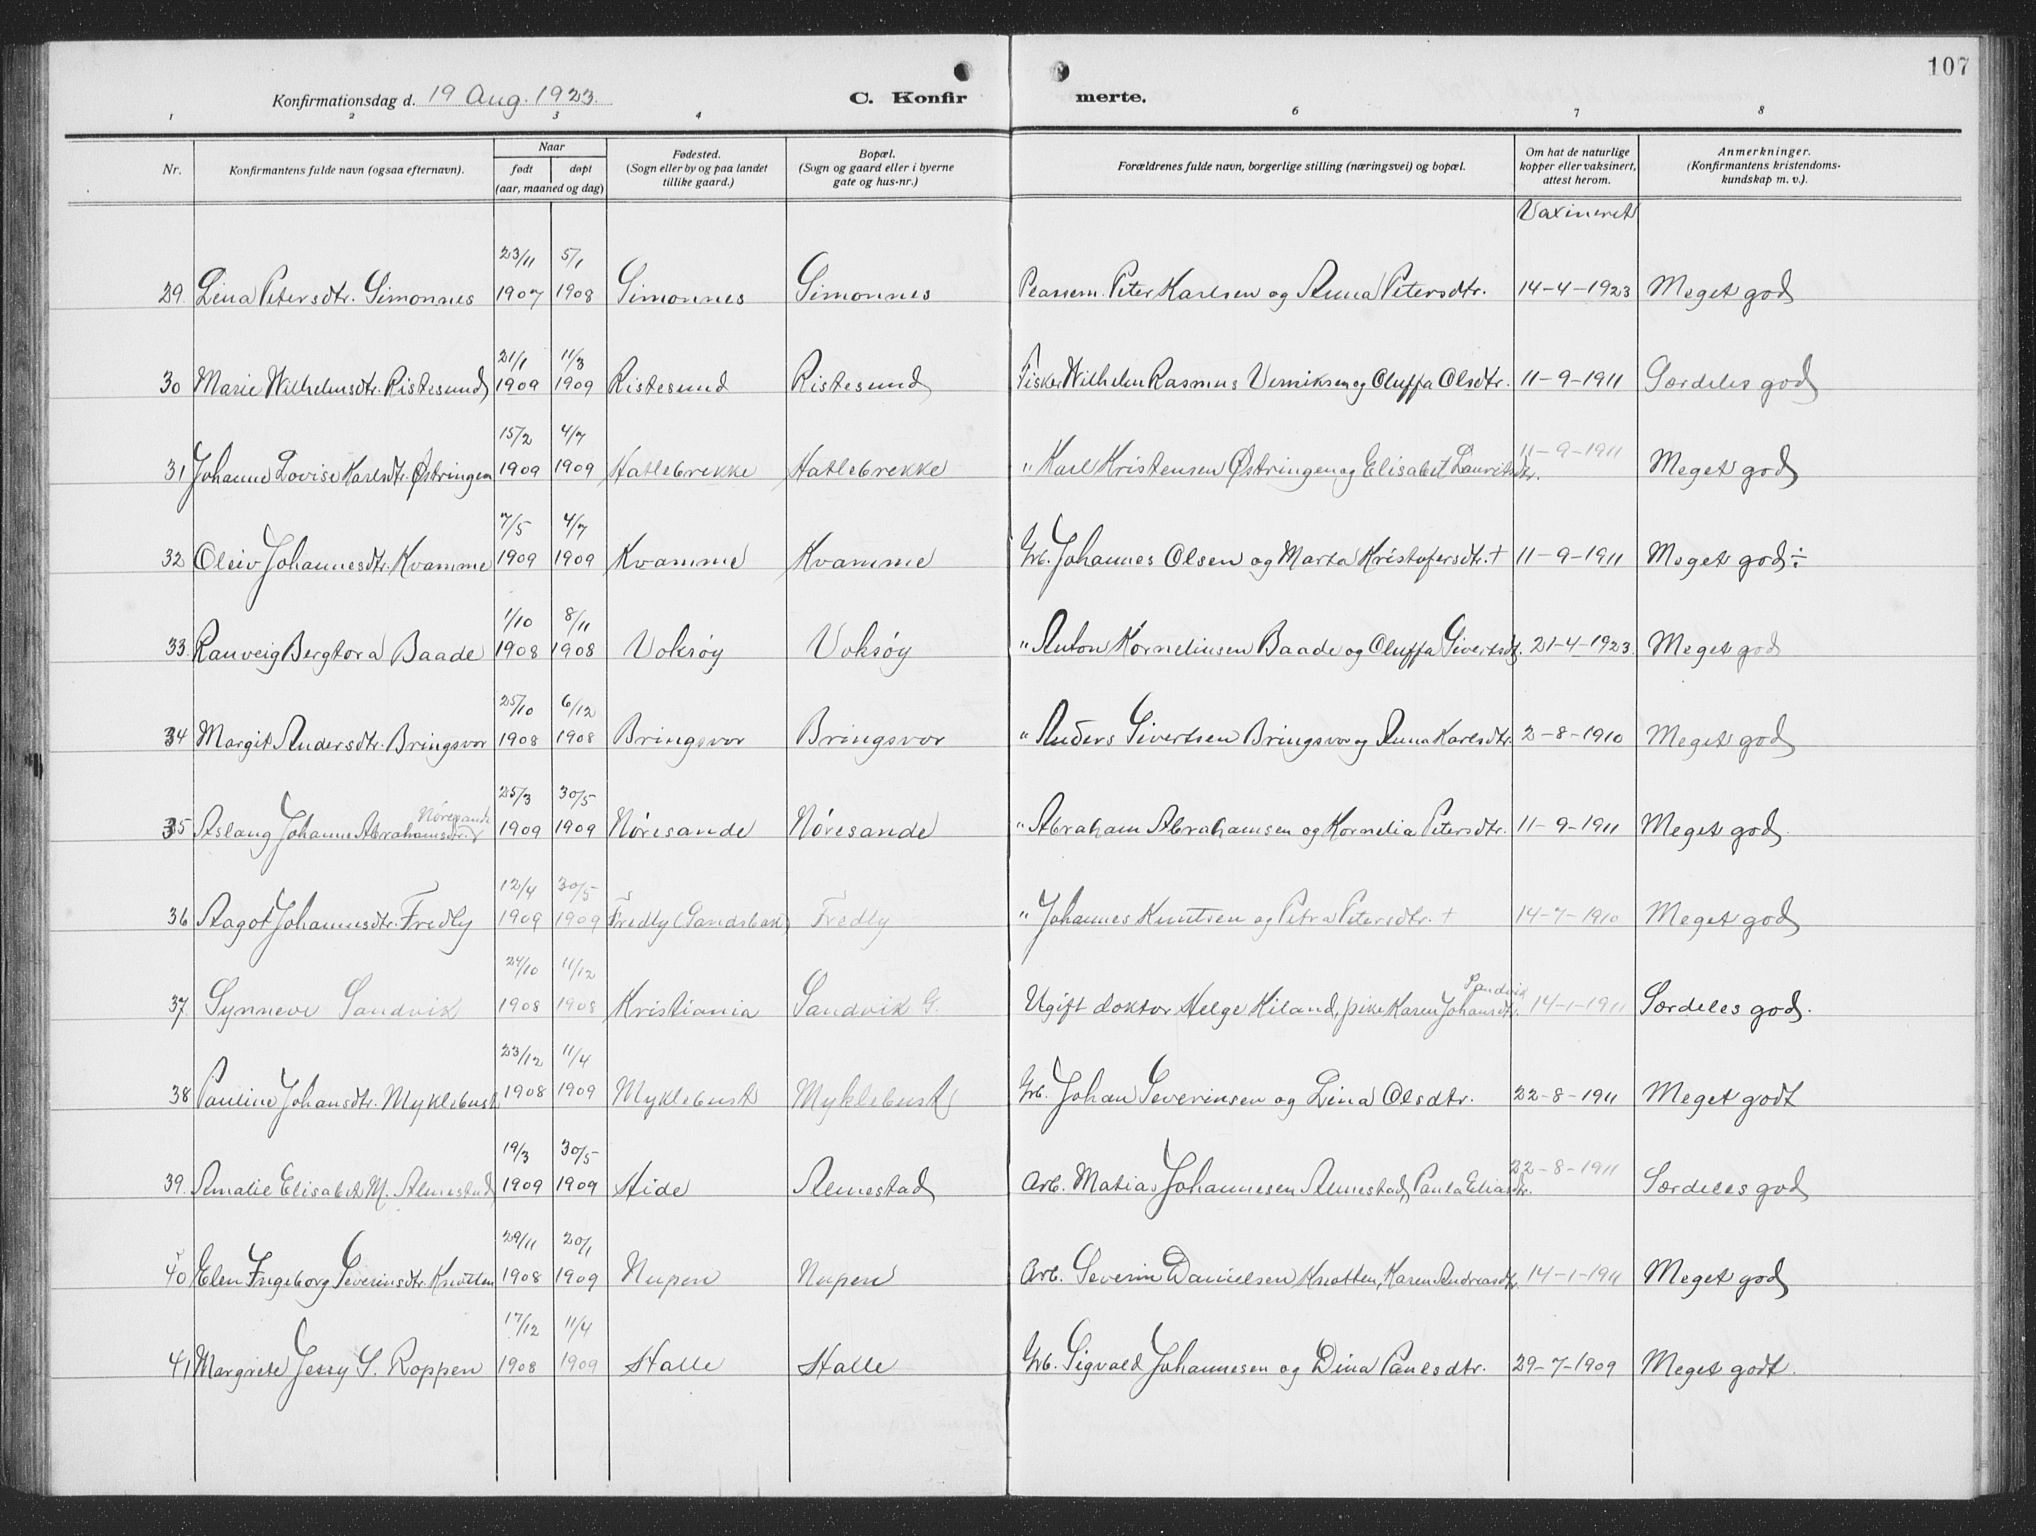 107
Konfirmationsdag d. 19 Aug. 1923. C. Konfir merte.
1 2 3 4 6 7 8
Nr. Konfirmantens fulde navn (ogsaa efternavn). Naar født døpt (aar, maaned og dag) Fødested. (Sogn eller by og paa landet tillike gaard.) Bopæl. (Sogn og gaard eller i byerne gate og hus-nr.) Forældrenes fulde navn, borgerlige stilling (næringsvei) og bopæl. Om hat de naturlige kopper eller vaksinert, attest herom. Anmerkninger. (Konfirmantens kristendoms-kundskap m. v.).
Vaxineret
23/11 5/1
29. Lina Petersdtr. Simonnes 1907 1908 Simonnes Simonnes Peter Karlsen og Anna Petersdtr. 14-4-1923 Meget god
21/1 11/3
30 Marie Wilhelmsdtr. Ristesund 1909 1909 Ristesund Ristesund Fisker Wilhelm Rasmus og Oluffa Olsdtr. 11-9-1911 Særdeles god
15/2 4/7
31 Johanne Lovise Karlsdtr. Østringen 1909 1909 Hatlebrekke Hatlebrekke " Karl Kristensen Østringen og Elisabet Lauritsdtr. 11-9-1911 Meget god
7/5 4/7
32 Oleiv Johannesdtr. Kvamme 1909 1909 Kvamme Kvamme Grb. Johannes Olsen og Marta Kristofersdtr. † 11-9-1911 Meget god ÷
1/10 8/11
33. Ranveig Bergtora Baade 1908 1908 Voksøy Voksøy " Anton Korneliusen Baade og Oluffa Sivertsdt. 21-4-1923. Meget god
25/10 6/12
34 Margit Andersdtr. Bringsvor 1908 1908 Bringsvor Bringsvor " Anders Sivertsen Bringsvor og Anna Karlsdtr. 2-8-1910 Meget god
25/3 30/5
35 Aslaug Johanne Abrahamsdtr. Nøresande 1909 1909 Nøresande Nøresande " Abraham Abrahamsen og Kornelia Petersdtr. 11-9-1911 Meget god.
12/4 30/5
36 Aagot Johannesdtr. Fredly 1909 1909 Fredly (Sandsbak) Fredly " Johannes Knutsen og Petra Petersdtr. † 14-7-1910 Meget god
24/10 11/12
37 Synneve Sandvik 1908 1908 Kristiania Sandvik G. Ugift doktor Helge Kiland, pike Karen Johansdt. Sandvik 14-1-1911 Særdeles god.
23/12 11/4
38 Pauline Johansdtr. Myklebust 1908 1909 Myklebust Myklebust Grb. Johan Severinsen og Lina Olsdtr. 22-8-1911 Meget godt
19/3 30/5
39. Amalie Elisabet M. Almestad 1909 1909 Hide Almestad Arb. Matias Johannesen Almestad, Paula Eliasdtr. 22-8-1911 Særdeles god
29/11 20/1
40 Elen Ingeborg Severinsdtr. Knotten 1908 1909 Nupen Nupen Arb. Severin Danielsen Knotten, Karen Andreasdt. 14-1-1911 Meget god
17/12 11/4
41 Margrete Jessy S. Roppen 1908 1909 Halle Halle Grb. Sigvald Johannesen og Dina Paulsdtr. 29-7-1909 Meget godt.